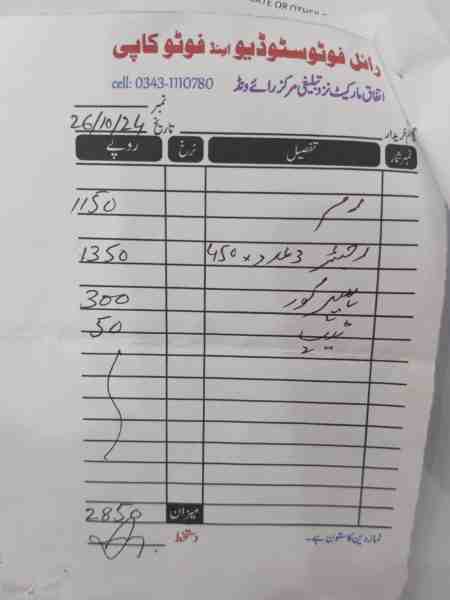 ATE OR OTHER
رائل فوٹوسٹوڈیو اینڈ فوٹو کاپی
اتفاق مارکیٹ نزد تبلیغی مرکز رائے ونڈ cell: 0343-1110780
نمبر
نام خریدار تاریخ 26/10/24
نمبر شمار تفصیل نرخ روپے
رم 1150
رجسٹر 3 عدد × 450 1350
پیپر کور 300
ٹیپ 50
میزان 2850
نماز دین کا ستون ہے۔ دستخط